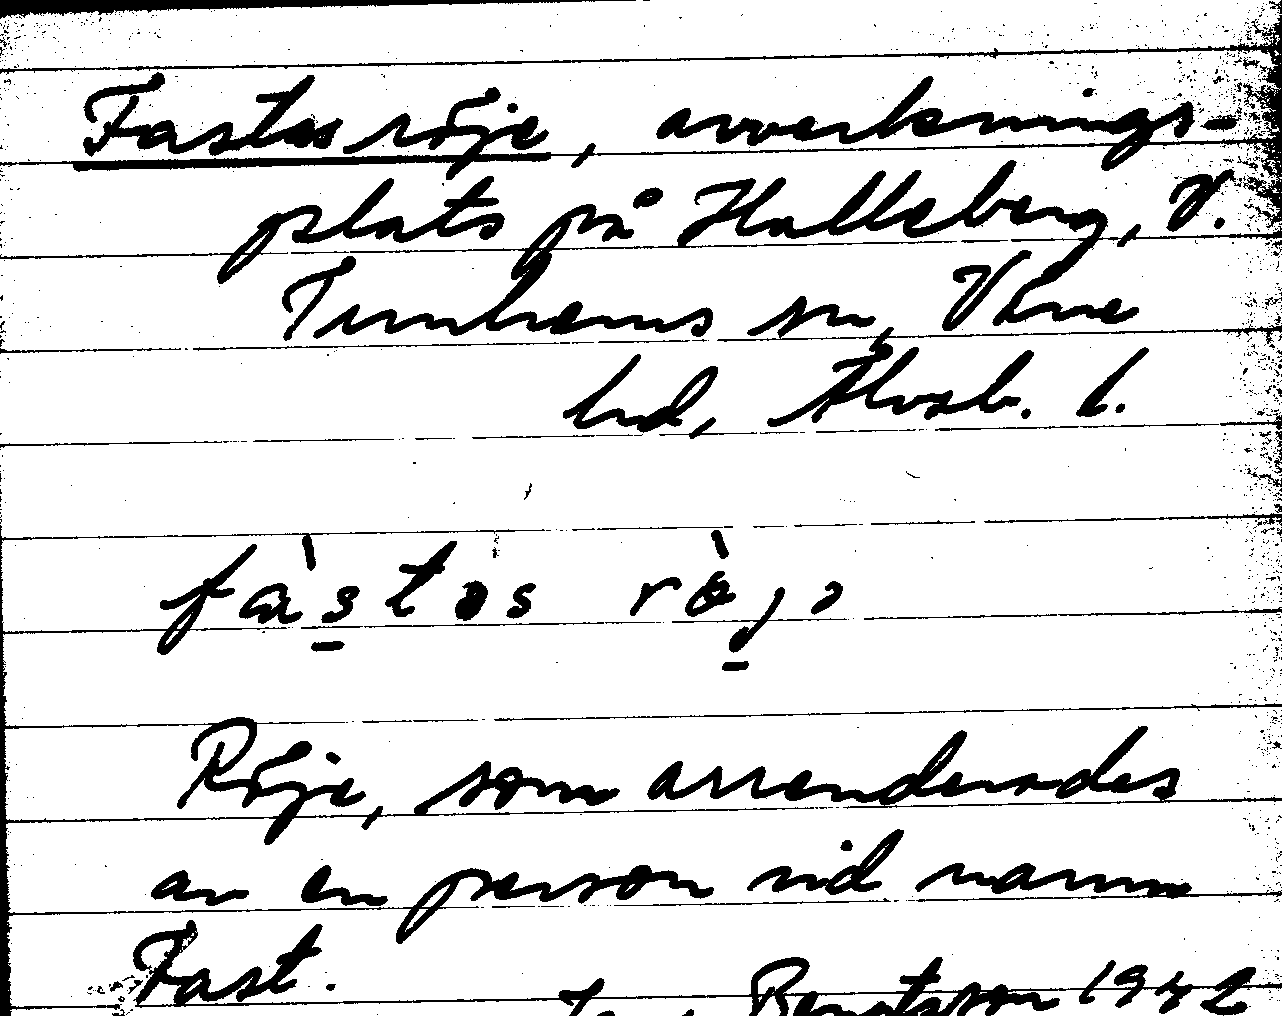 Fastusröje, avverknings-
plats på Halleberg, V.
Tunhems sn, Väne
hd, Älvsb. l.
fàstɵs rø̀jə
Röje, som arrenderades
av en person vid namn
Fast.
Bengtsson 1942